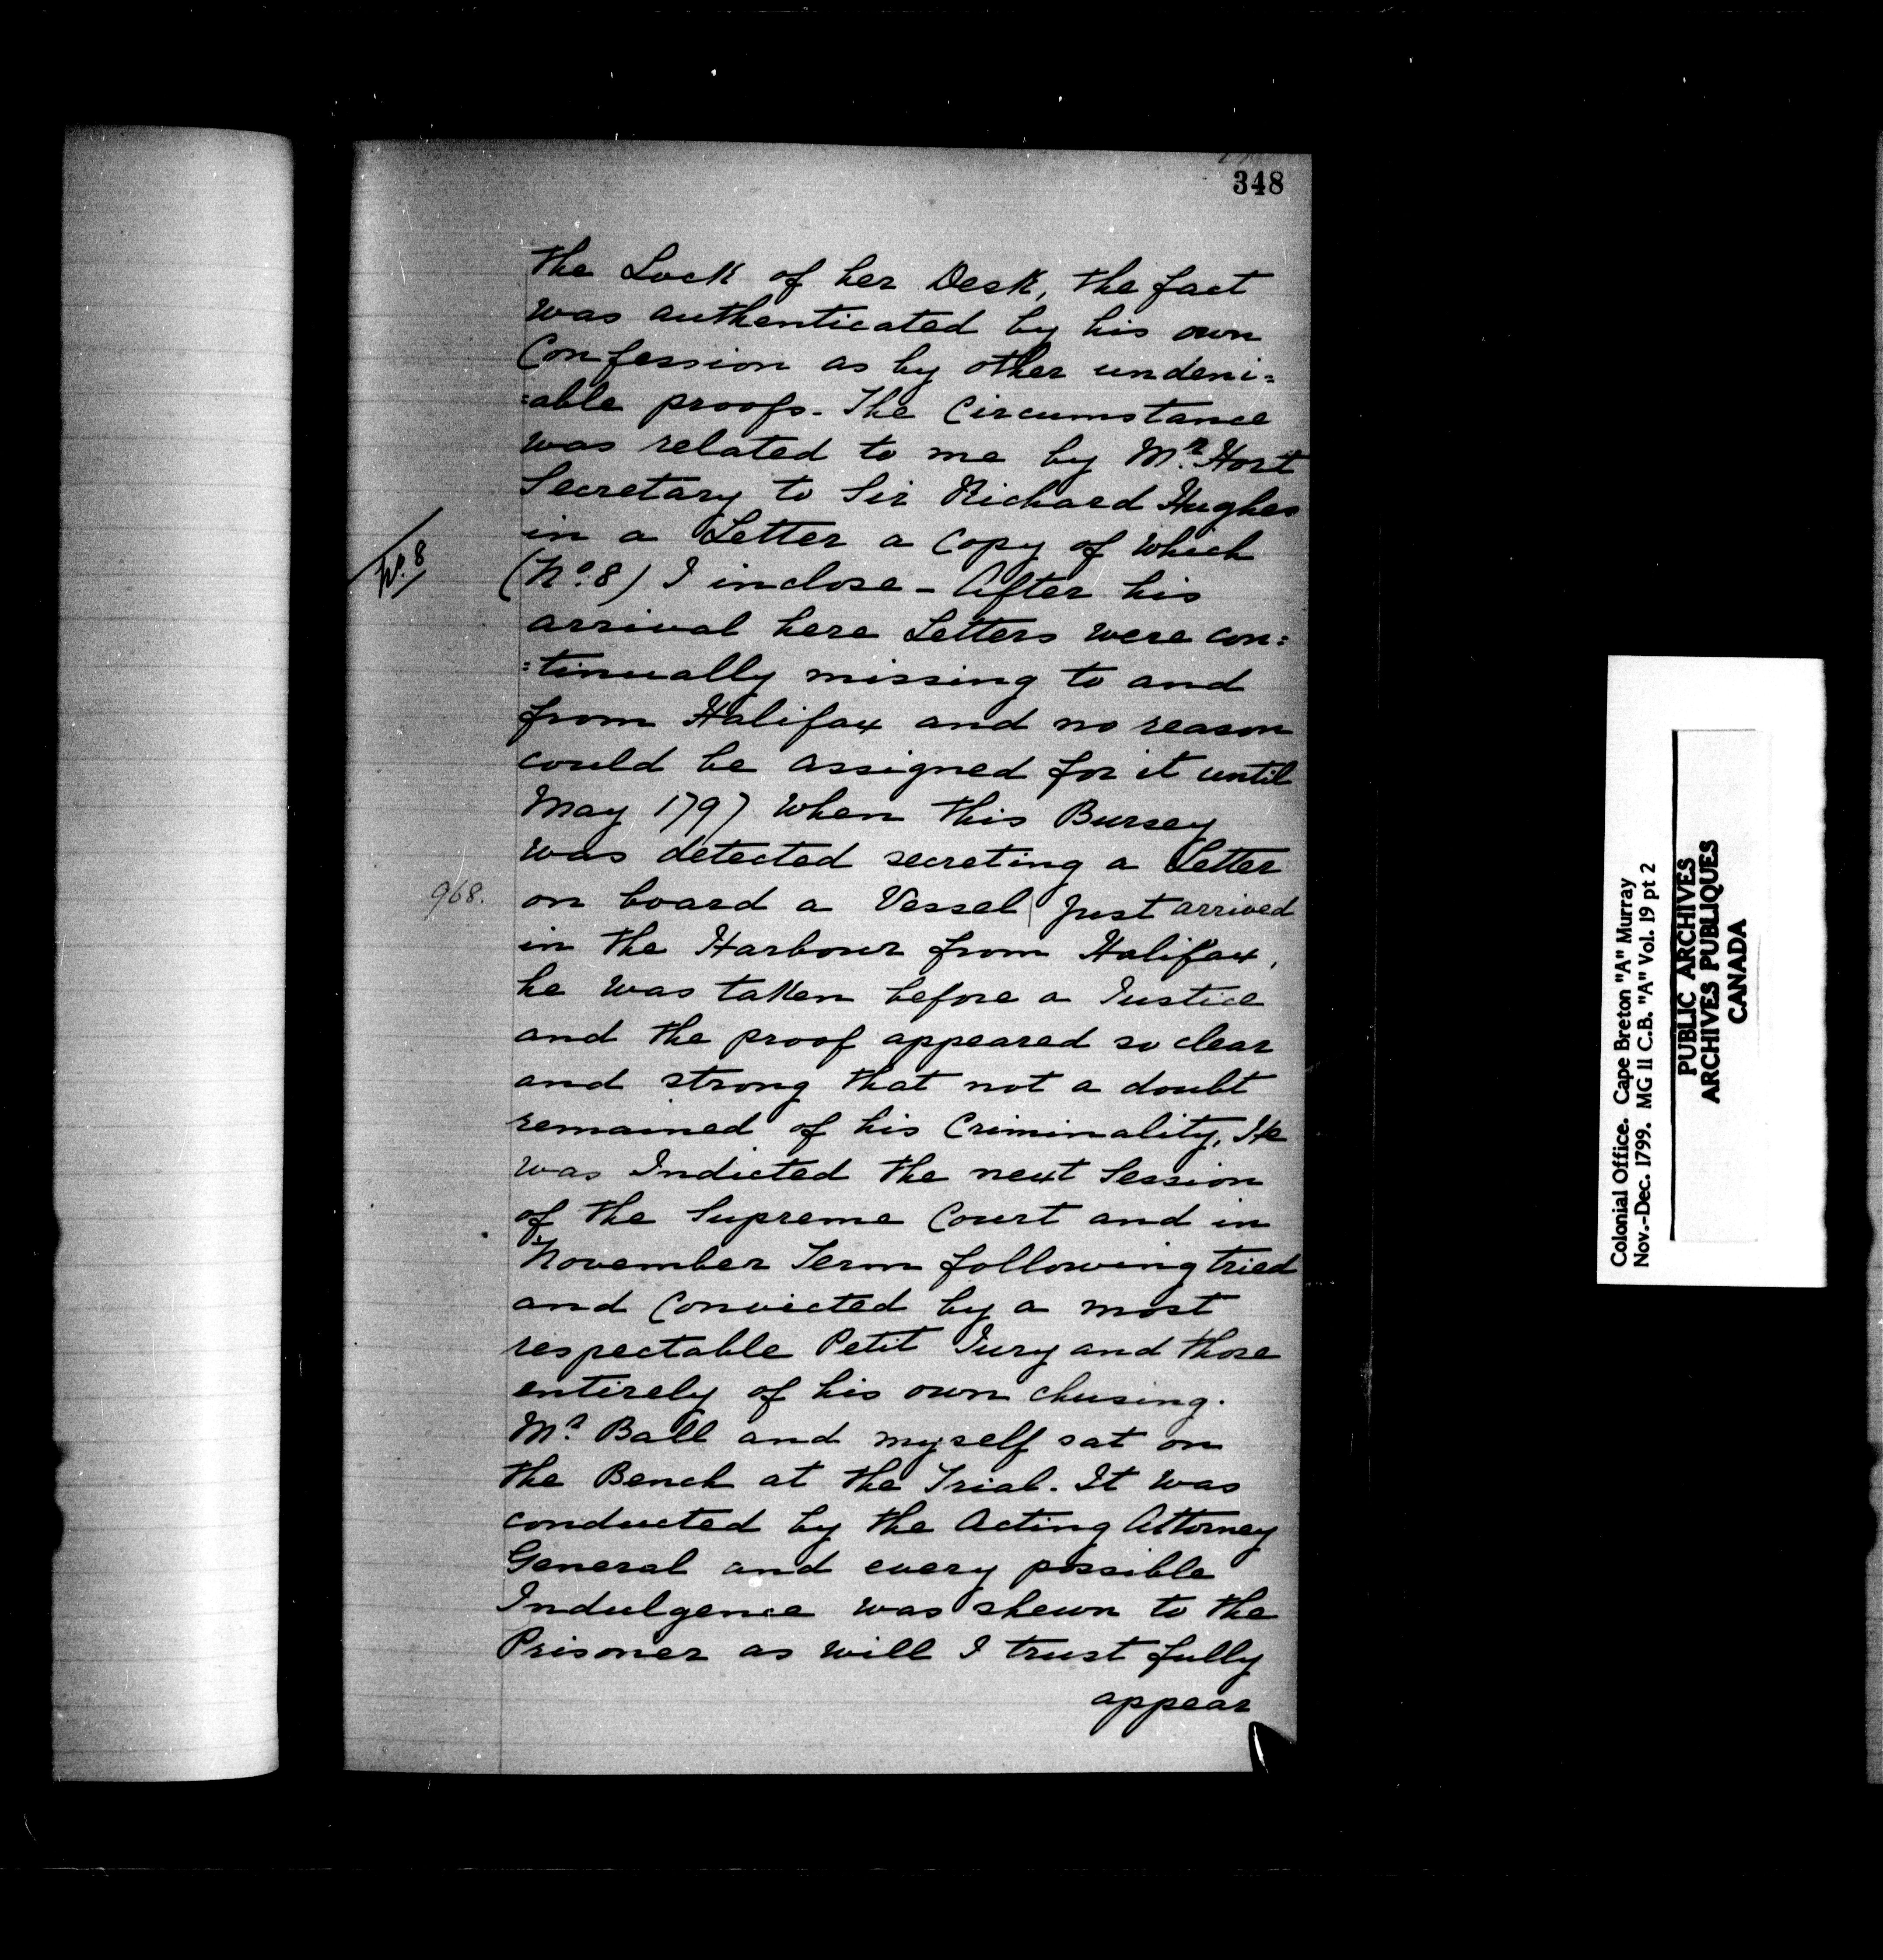 348
the Lock of her Desk, the fact
was authenticated by his own
Confession as by other undeni=
=able proofs. The Circumstance
was related to me by Mr. Hort
Secretary to Sir Richard Hughes
in a Letter a Copy of which
No. 8
(No. 8) I inclose - After his
arrival here Letters were con=
=tinually missing to and
from Halifax and no reason
could be assigned for it until
May 1797 when this Bursey
was detected secreting a Letter
968.
on board a Vessel | just arrived
in the Harbour from Halifax,
he was taken before a Justice
and the proof appeared so clear
and strong that not a doubt
remained of his Criminality, He
was Indicted the next Session
of the Supreme Court and in
November Term following tried
and Convicted by a most
respectable Petit Jury and those
entirely of his own chusing.
Mr. Ball and myself sat on
the Bench at the Trial. It was
conducted by the Acting Attorney
General and every possible
Indulgence was shewn to the
Prisoner as will I trust fully
appear
Colonial Office. Cape Breton "A" Murray
Nov.-Dec. 1799. MG 11 C.B. "A" Vol. 19 pt 2
PUBLIC ARCHIVES
ARCHIVES PUBLIQUES
CANADA